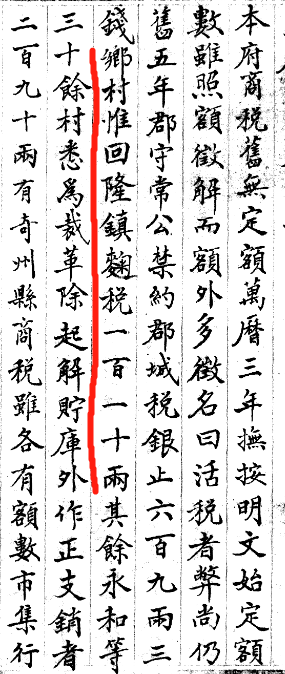 本府商税舊無定額萬曆三年撫按明文始定額
數雖照額徵解而額外多徵名曰活税者弊尚仍
舊五年郡守常公禁約郡城税銀止六百九兩三
錢鄉村惟回隆鎮麴税一百一十兩其餘永和等
三十餘村悉爲裁革除起解貯庫外作正支銷者
二百九十兩有奇州縣商税雖各有額數市集行